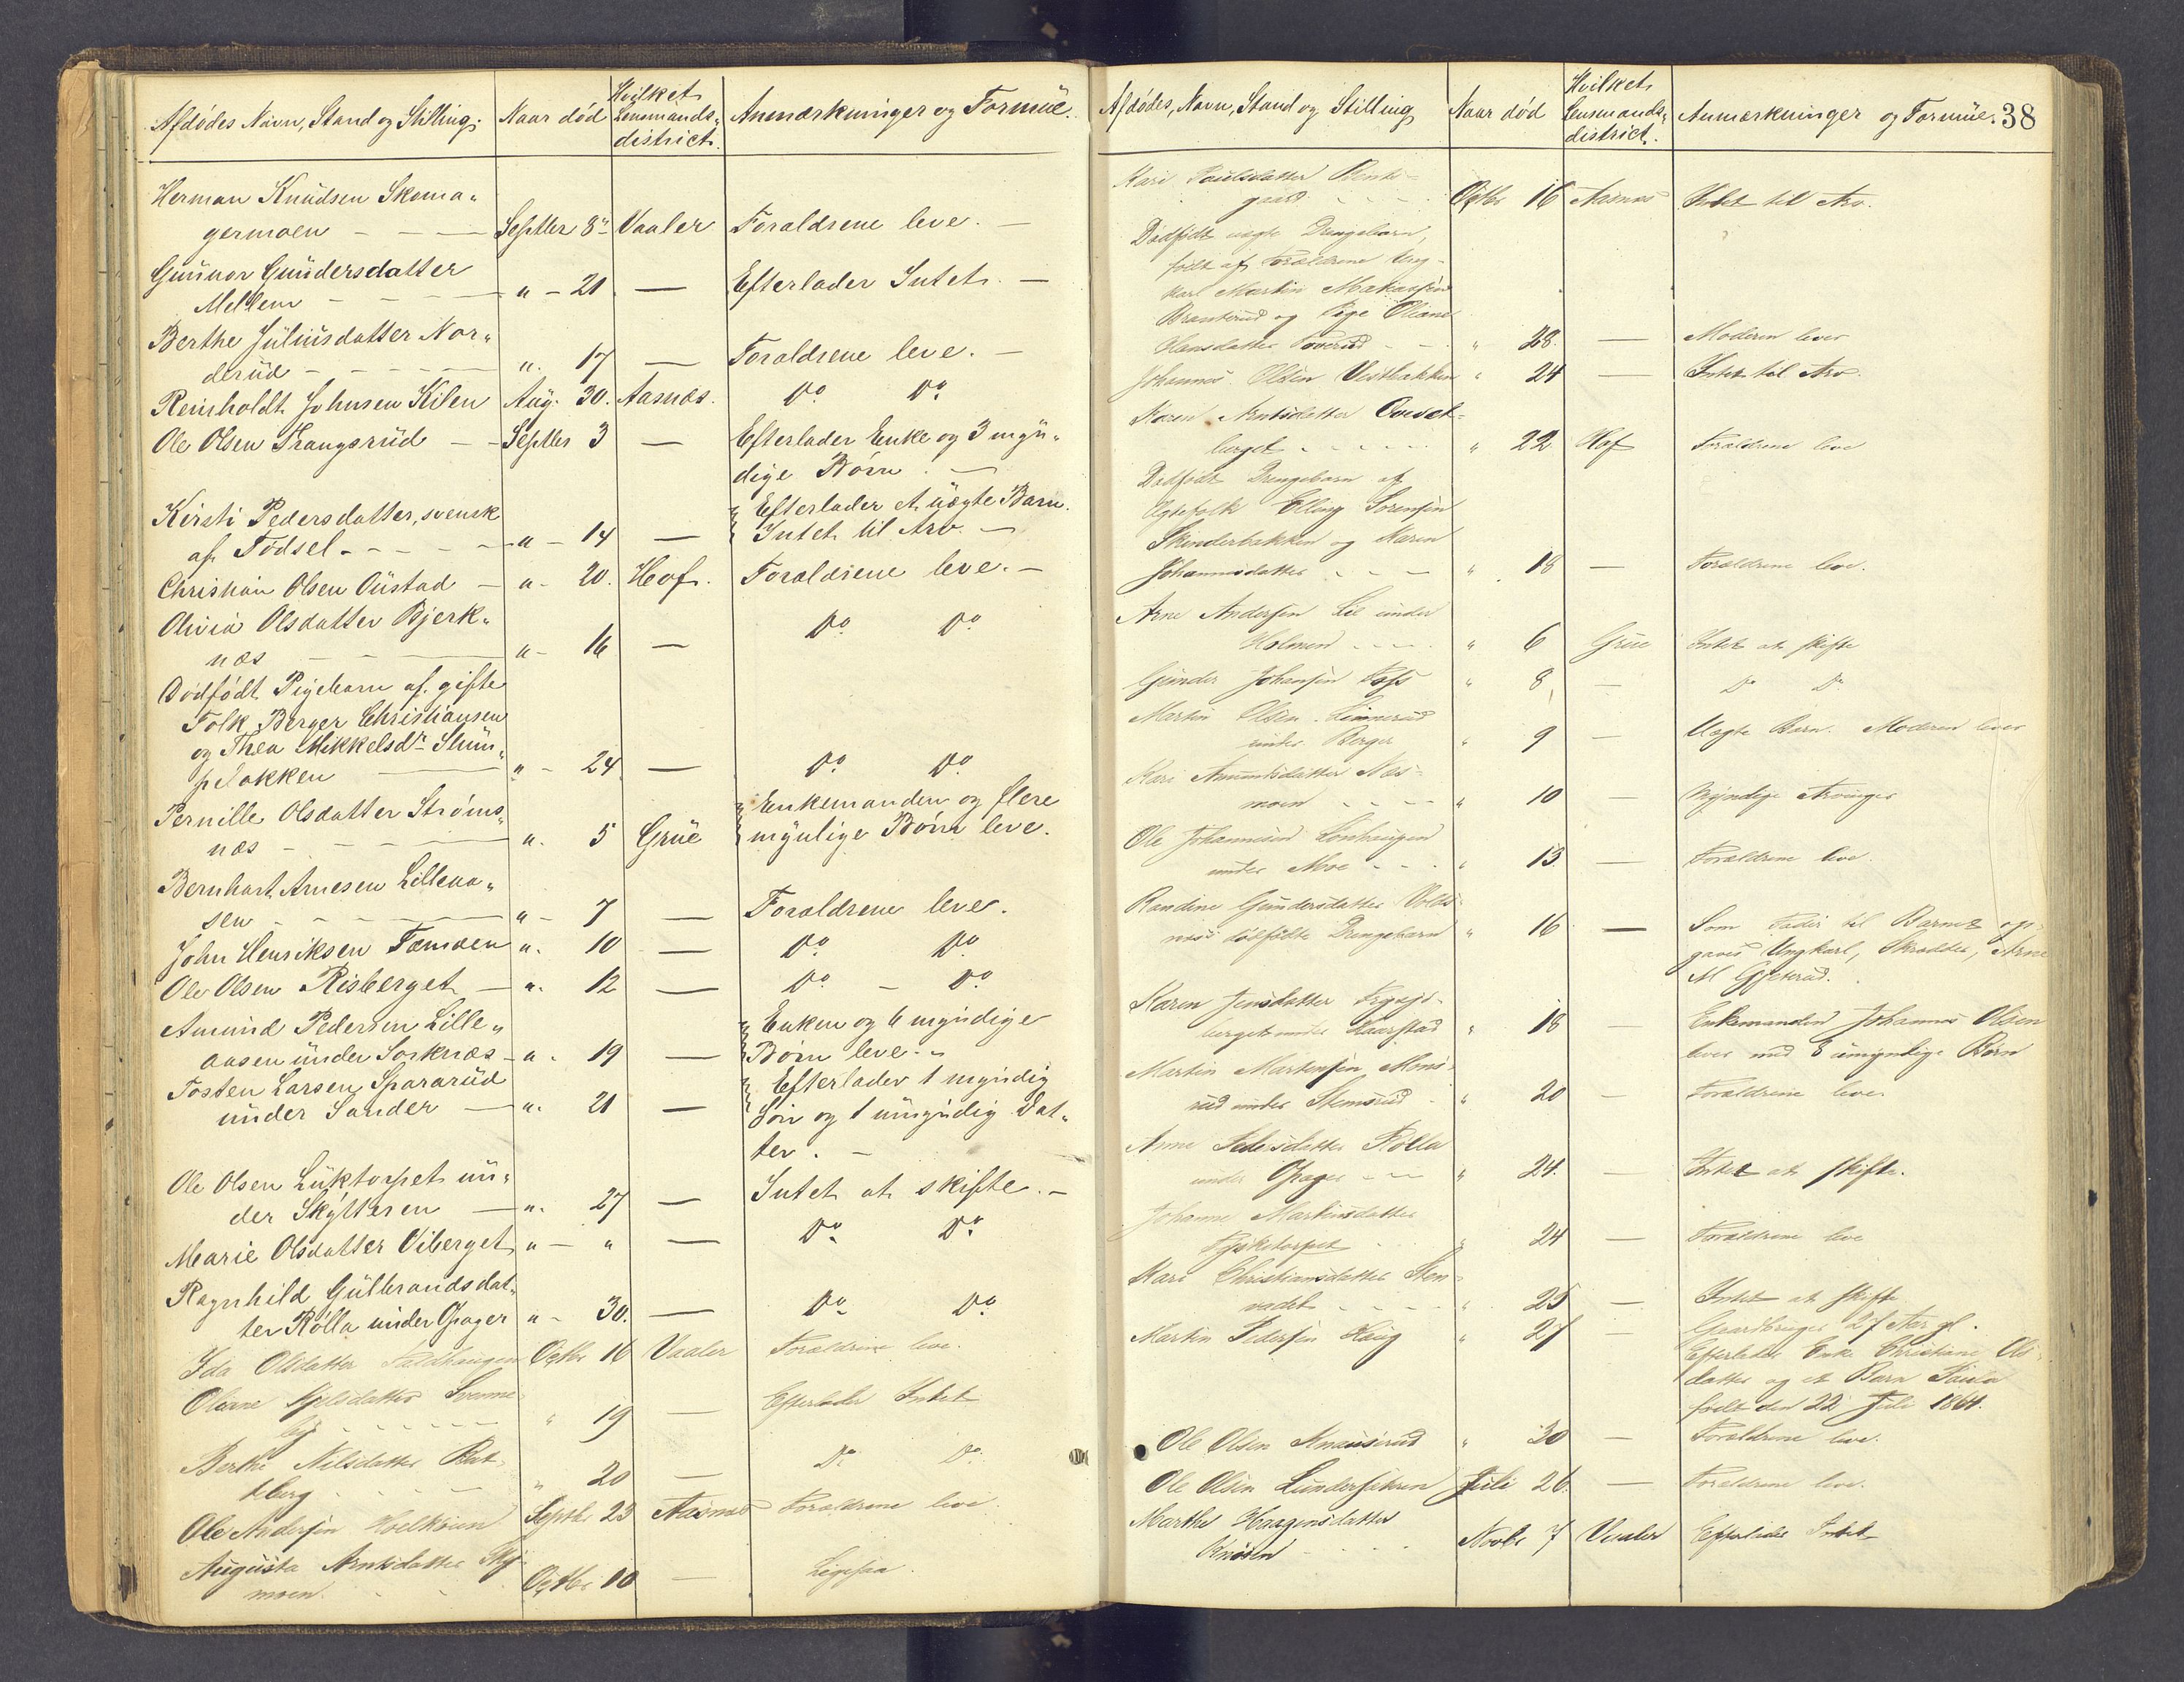 Afdødes Navn, Stand og Stilling.
Naar død
Hvilket
Lensmands-
district.
Anmærkninger og Formüe.
Herman Knudsen Skoma-
germoen - - - Septbr 8de Vaaler Forældrene leve. -
Gunnor Gundersdatter
Mellem - - - " - 21 — Efterlader Intet. -
Berthe Juliusdatter Nor-
derüd - - - " 17 — Forældrene leve. -
Reinholdt Johnsen Kilen Aug. 30. Aasnæs. Do Do
Ole Olsen Trangsrüd - - Septbr 3 — Efterlader Enke og 3 myn-
dige Børn. -
Kirsti Pedersdatter, svensk Efterlader et uægte Barn.
af Fødsel - - - " - 14 — Intet til Arv. -
Christian Olsen Oüstad - " - 20. Hof. Forældrene leve. -
Olivia Olsdatter Bjerk-
næs - - - " - 16 — Do Do
Dødfødt Pigebarn af gifte
Folk Berger Christiansen
og Thea Mikkelsdr
— " - 24 — Do Do
Pernille Olsdatter Strøms- Enkemanden og flere
næs - - - " - 5 Grüe myndige Børn leve.
Bernhart Arnesen Lilleaa-
sen - - - " - 7 — Forældrene leve.
John Henriksen Tæmoen " - 10 — Do Do
Ole Olsen Risberget - " - 12 — Do - Do
Amund Pedersen Lille- Enken og 6 myndige
aasen ünder Sorknæs - " - 19 — Børn leve. -
Tosten Larsen Spararüd Efterlader 1 myndig
ünder Sander - " - 21 — Søn og 1 umyndig Dat-
ter. -
Ole Olsen Lüktorpet ün-
der Skÿtteren - " - 27 — Intet at skifte. -
Marie Olsdatter Viberget " - " — Do Do
Ragnhild Gulbrandsdat-
ter Rølla ünder Opager " - 30. — Do Do
Ida Olsdatter Oqtbr 16 Vaaler Forældrene leve.
Oliane
" 19 — Efterlader Intet
Berthe Nilsdatter Rat-
kberg - - - " 20 — Do Do
Ole Andersen Septbr 23 Aasnæs Forældrene leve.
Augusta Arntsdatter
moen - - Oqtbr 10 — Ligesaa.
Afdødes, Navn, Stand og Stilling
Naar død
Hvilket
Lensmands-
district.
Anmærkninger og Formüe. 38
Kari Paulsdatter
gaard - - - Oqtbr 16 Aasnæs Intet til Arv.
Dødfødt uægte Drengebarn,
født af Forældrene Ung-
karl Martin
Branterud og Pige Oliane
Hansdatter - - " 28. — Moderen lever
Johannes Olsen Vestbakken " 24 — Intet til Arv.
Karen Arntsdatter Overset-
berget - - - " 22 Hof Forældrene leve
Dødfødt Drengebarn af
Ægtefolk Elling Sørensen
Skinderbakken og Karen
Johannesdatter - - - " 18 — Forældrene leve.
Arne Andersen Lie under
Holmen - - - " 6 Grüe Intet at skifte
Gunder Johansen " 8 — Do Do
Martin Olsen Linnerud
under Berger " 9 — Uægte Barn. Moderen lever
Kari Amundsdatter Næs-
moen - - - " 10 — Myndige Arvinger
Ole Johannesen
under Moe - - - " 13 — Forældrene leve.
Randine Gundersdatter Volds-
næs dødfødte Drengebarn " 16 — Som Fader til Barnet op-
gaves Ungkarl, Skrædder, Arne
M Gjeterud.
Karen Jensdatter
berget under Kaarstad " 18 — Enkemanden Johannes Olsen
lever med 3 umyndige Børn
Martin Martinsen
rud under Stemsrud - " 20 — Forældrene leve.
Anne Pedersdatter Rølla
under Opager - - " 24. — Intet at skifte.
Johanne Martinsdatter
" 24 — Forældrene leve
Kari Christiansdatter Sten-
- - - " 25 — Intet at skifte
Martin Pedersen Haug " 27 — Gaardbruger 27 Aar gl.
Efterlader Enke Christiane Ols-
datter og et Barn Paula
født den 22 Juli 1864.
Ole Olsen Knausrud " 30 — Forældrene leve.
Ole Olsen Lundersæteren Juli 26. — Forældrene leve.
Marthe Haagensdatter
- - - Novbr 7 Vaaler Efterlader Intet